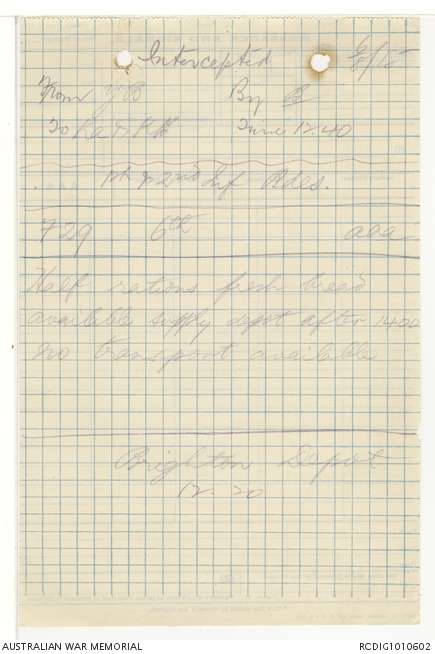 Intercepted 6/8/15
From YB By B
To Time 12.40
1st & 2nd Inf Bdes.
729 6th aaa
Half rations fresh bread
available supply depot after 1400
no transport available
Brighton Depot
12.20
AUSTRALIAN WAR MEMORIAL RCDIG1010602